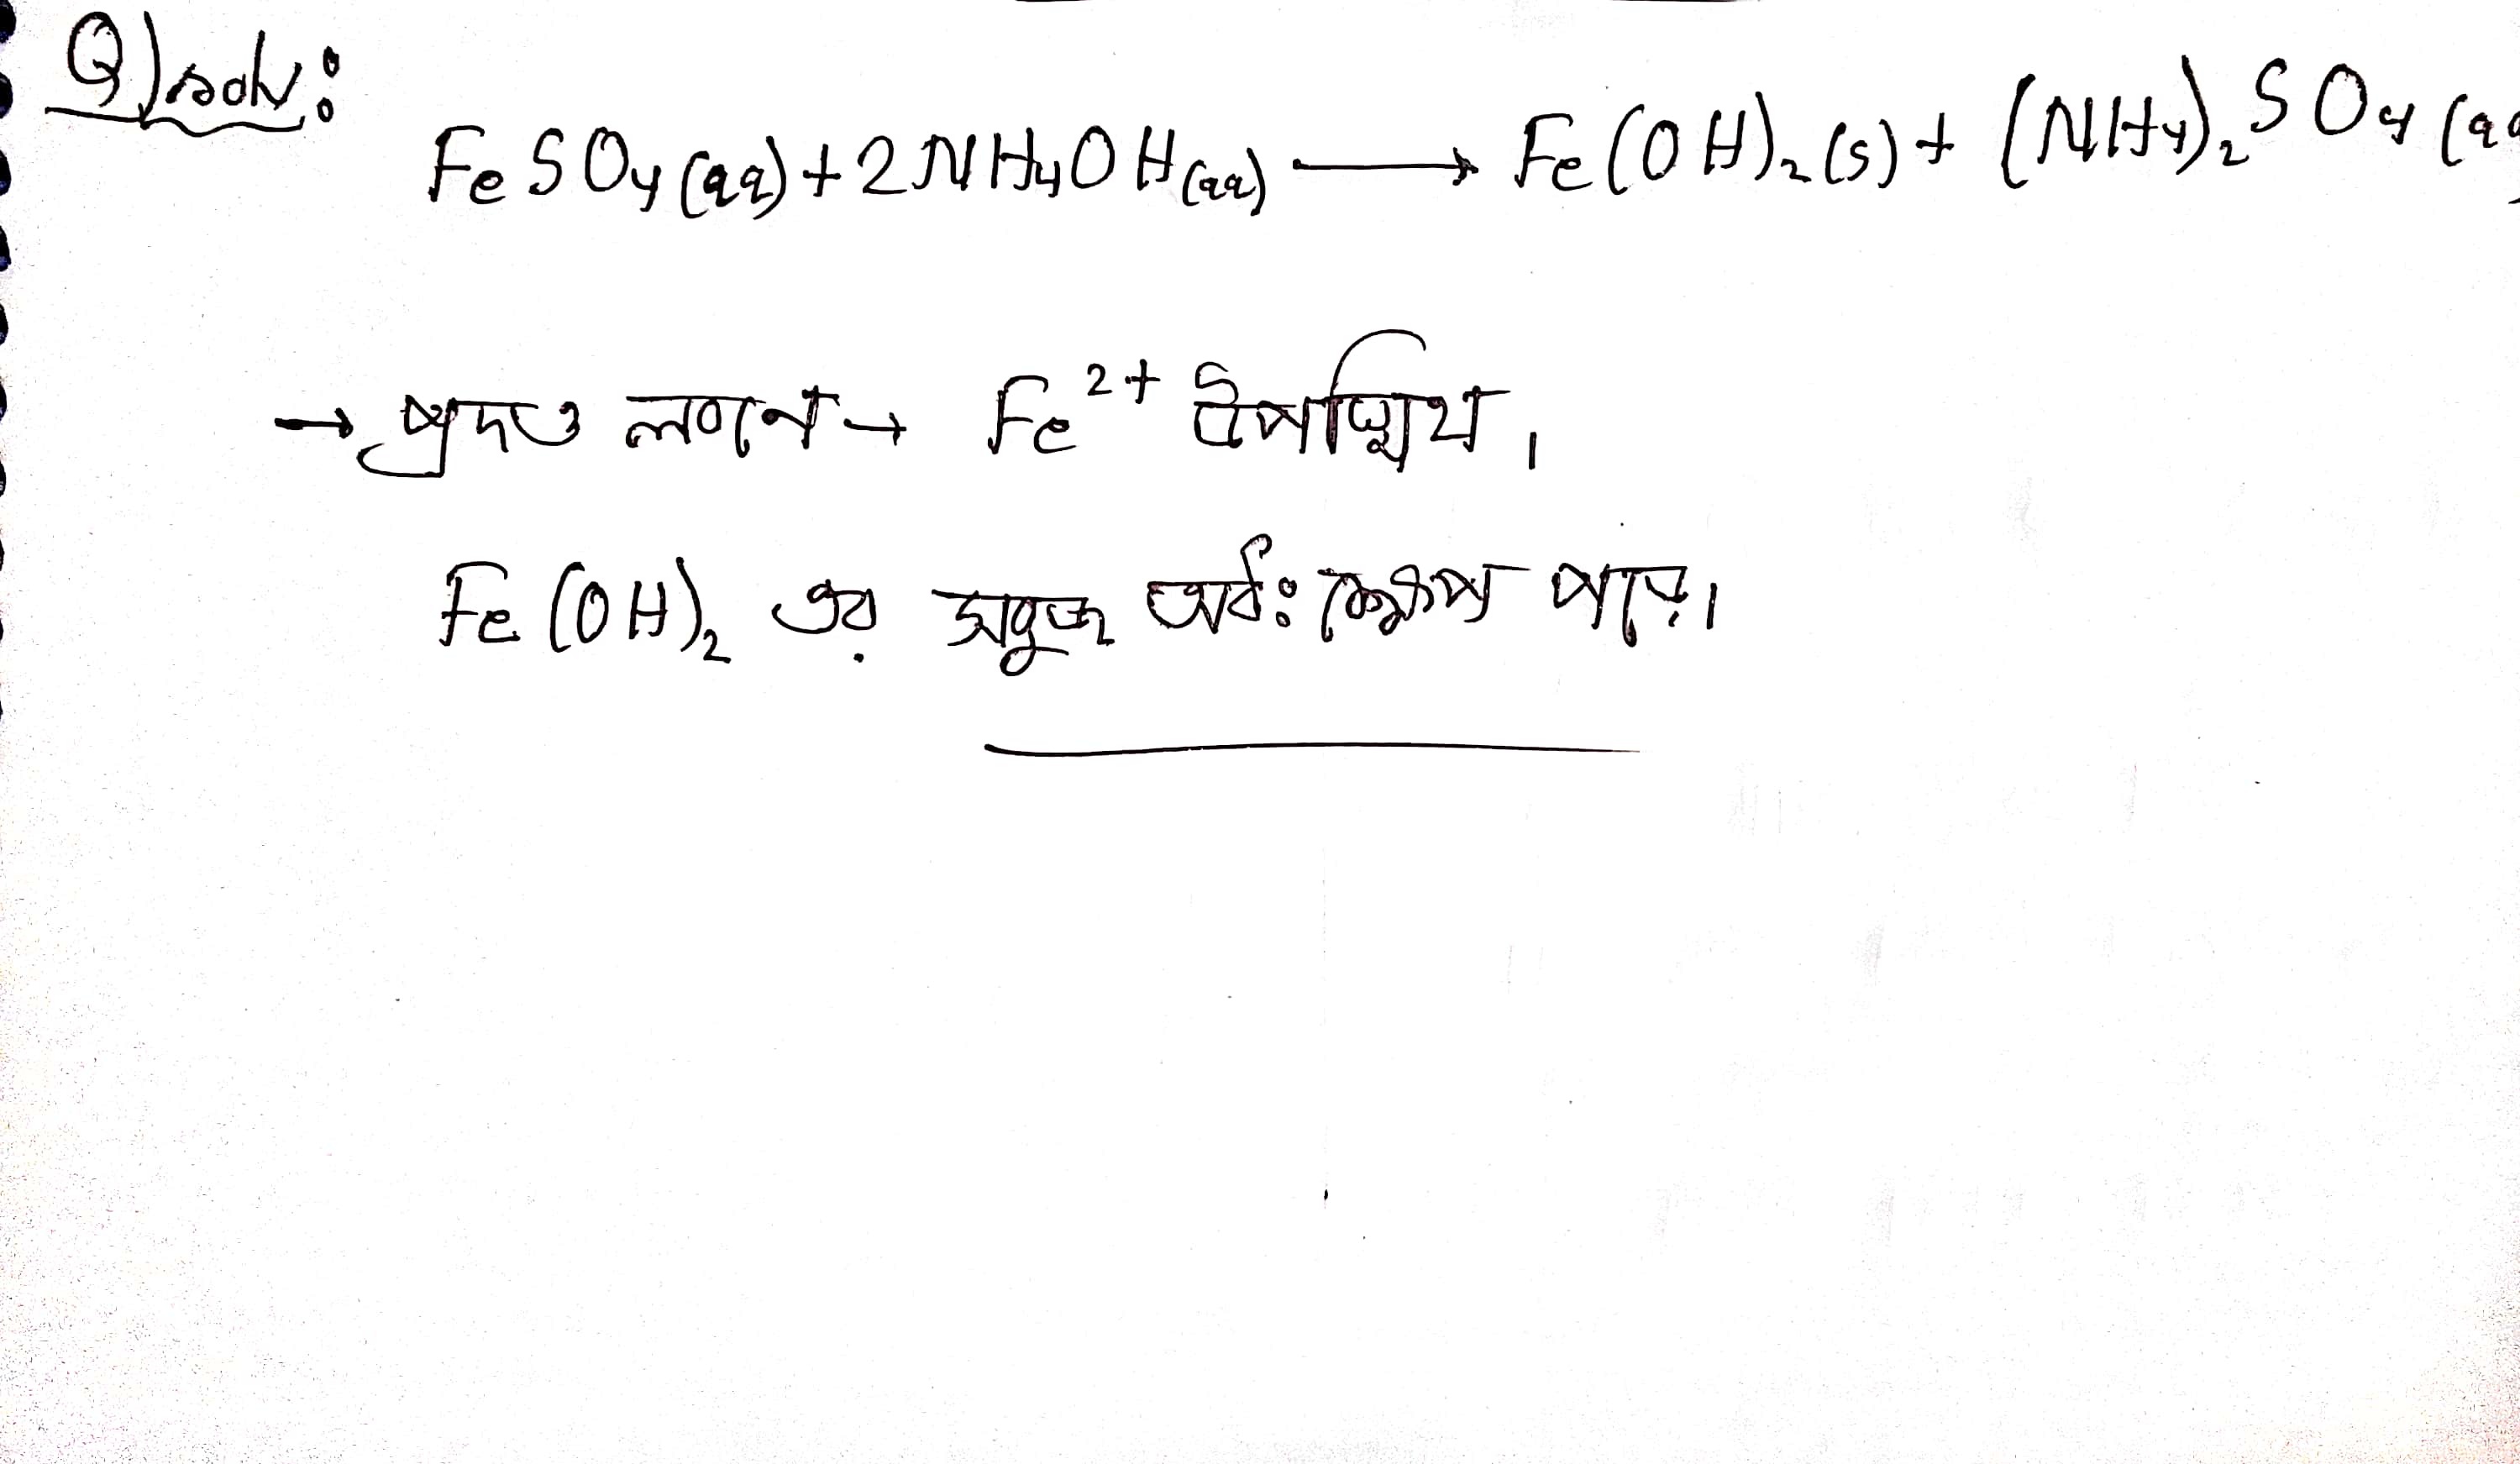 Q) solv:
FeSO₄(aq) + 2NH₄OH(aq) ⟶ Fe(OH)₂(s) + (NH₄)₂SO₄(aq
→ প্রদত্ত লবণে → Fe²⁺ উপস্থিথ।
Fe(OH)₂ এর সবুজ অধঃক্ষেপ পড়ে।